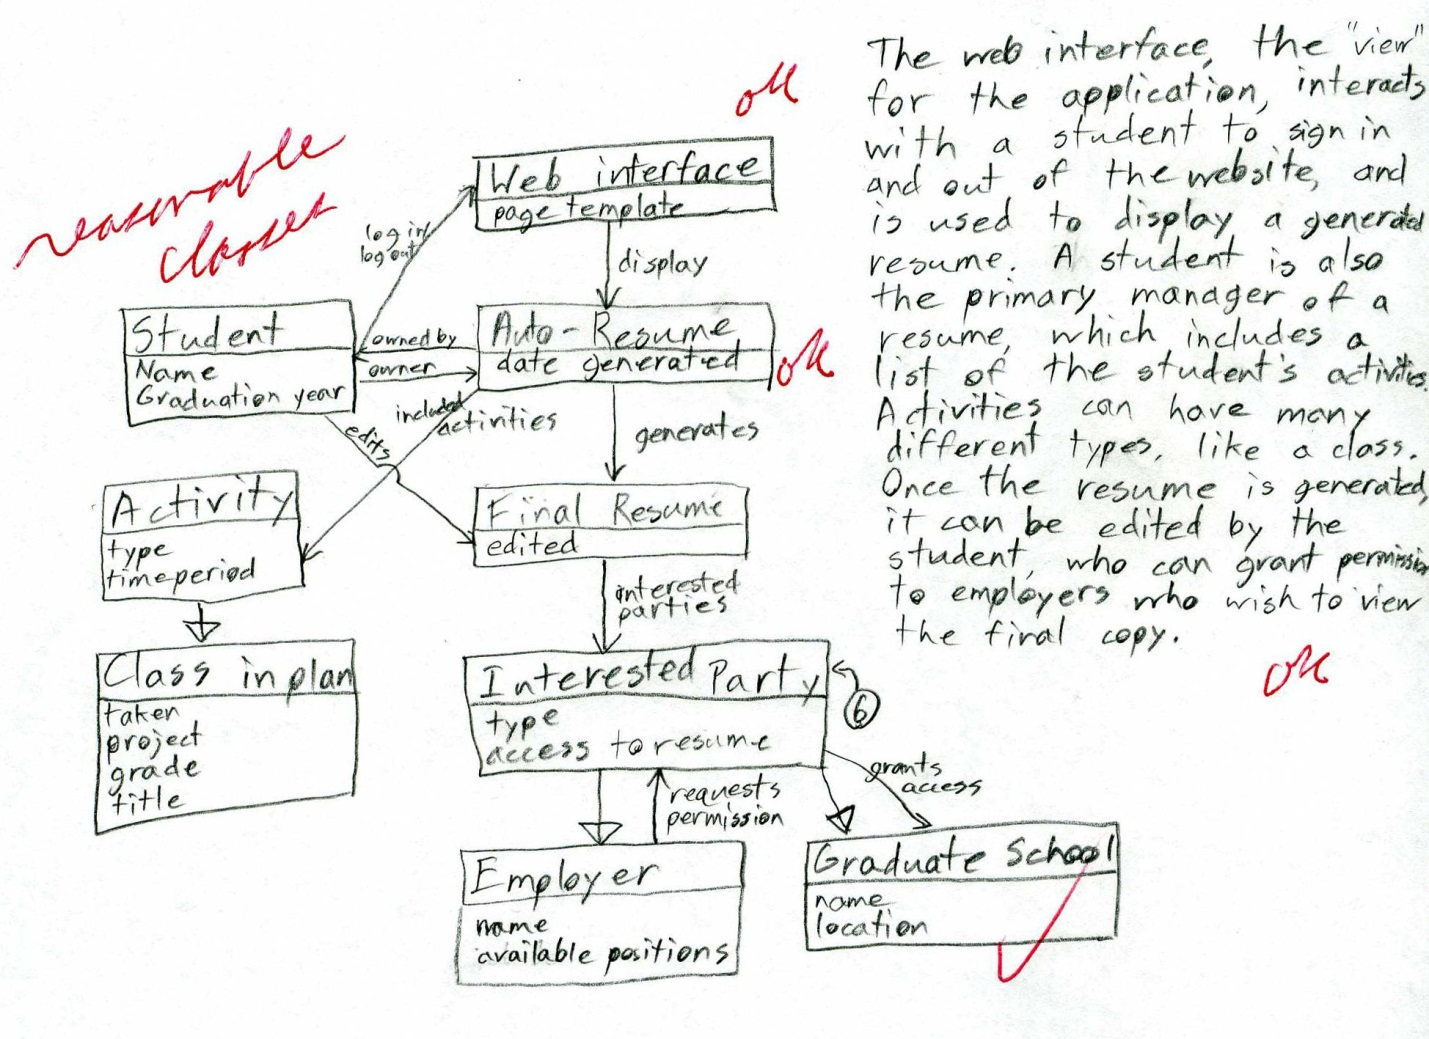 ok
reasonable
classes
Web interface
page template
log in/
log out
display
Student
Name
Graduation year
owned by
owner
Auto-Resume
date generated
ok
included
activities
edits
generates
Activity
type
timeperiod
Final Resume
edited
interested
parties
Class in plan
taken
project
grade
title
Interested Party
type
access to resume
6
requests
permission
grants
access
Employer
name
available positions
Graduate School
name
location
The web interface, the "view"
for the application, interacts
with a student to sign in
and out of the website, and
is used to display a generated
resume. A student is also
the primary manager of a
resume, which includes a
list of the student's activities.
Activities can have many
different types, like a class.
Once the resume is generated,
it can be edited by the
student, who can grant permission
to employers who wish to view
the final copy.
ok